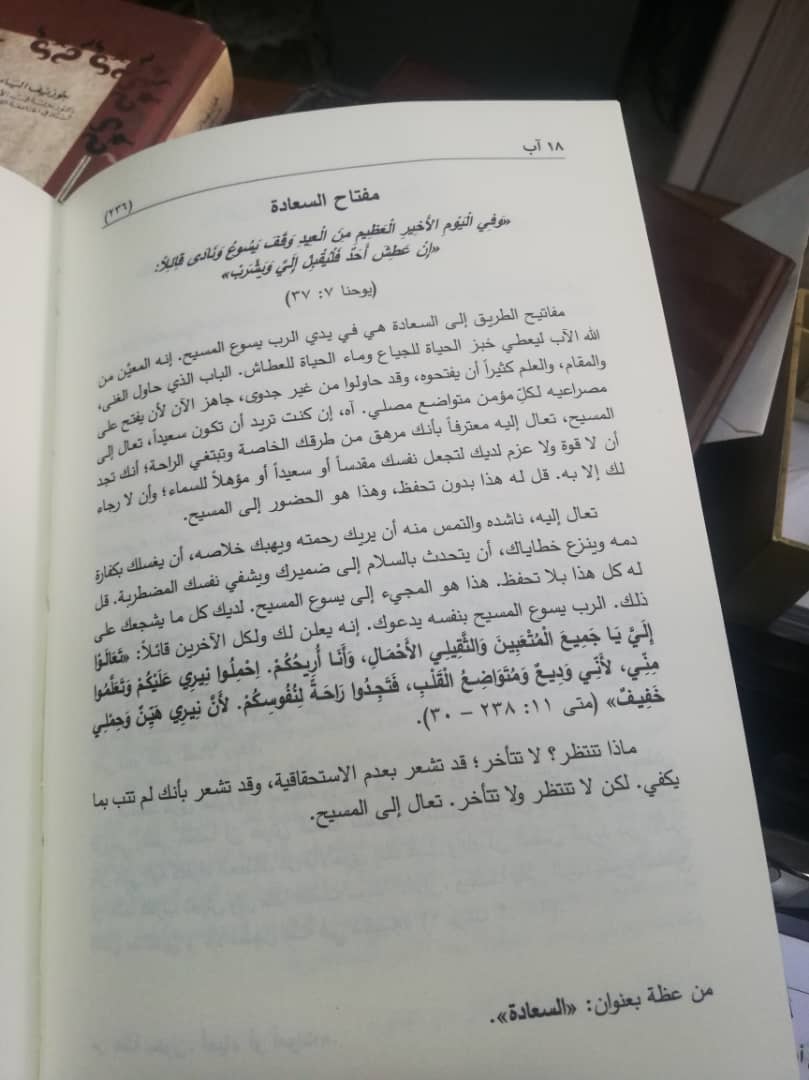 جوزيف
١٨ آب
(٢٣٦)
مفتاح السعادة
«وَفِي الْيَوْمِ الأَخِيرِ الْعَظِيمِ مِنَ الْعِيدِ وَقَفَ يَسُوعُ وَنَادَى قَائِلاً:
«إِنْ عَطِشَ أَحَدٌ فَلْيُقْبِلْ إِلَيَّ وَيَشْرَبْ»
(يوحنا ٧: ٣٧)
مفاتيح الطريق إلى السعادة هي في يدي الرب يسوع المسيح. إنه المعيَّن من
الله الآب ليعطي خبز الحياة للجياع وماء الحياة للعطاش. الباب الذي حاول الغنى،
والمقام، والعلم كثيراً أن يفتحوه، وقد حاولوا من غير جدوى، جاهز الآن لأن يفتح على
مصراعيه لكلّ مؤمن متواضع مصلي. آه، إن كنت تريد أن تكون سعيداً، تعال إلى
المسيح، تعال إليه معترفاً بأنك مرهق من طرقك الخاصة وتبتغي الراحة؛ أنك تجد
أن لا قوة ولا عزم لديك لتجعل نفسك مقدساً أو سعيداً أو مؤهلاً للسماء؛ وأن لا رجاء
لك إلا به. قل له هذا بدون تحفظ، وهذا هو الحضور إلى المسيح.
تعال إليه، ناشده والتمس منه أن يريك رحمته ويهبك خلاصه، أن يغسلك بكفارة
دمه وينزع خطاياك، أن يتحدث بالسلام إلى ضميرك ويشفي نفسك المضطربة. قل
له كل هذا بلا تحفظ. هذا هو المجيء إلى يسوع المسيح. لديك كل ما يشجعك على
ذلك. الرب يسوع المسيح بنفسه يدعوك. إنه يعلن لك ولكل الآخرين قائلاً: «تَعَالَوْا
إِلَيَّ يَا جَمِيعَ الْمُتْعَبِينَ وَالثَّقِيلِي الأَحْمَالِ، وَأَنَا أُرِيحُكُمْ. اِحْمِلُوا نِيرِي عَلَيْكُمْ وَتَعَلَّمُوا
مِنِّي، لأَنِّي وَدِيعٌ وَمُتَوَاضِعُ الْقَلْبِ، فَتَجِدُوا رَاحَةً لِنُفُوسِكُمْ. لأَنَّ نِيرِي هَيِّنٌ وَحِمْلِي
خَفِيفٌ» (متى ١١: ٢٣٨ – ٣٠).
ماذا تنتظر؟ لا تتأخر؛ قد تشعر بعدم الاستحقاقية، وقد تشعر بأنك لم تتب بما
يكفي. لكن لا تنتظر ولا تتأخر. تعال إلى المسيح.
من عظة بعنوان: «السعادة».